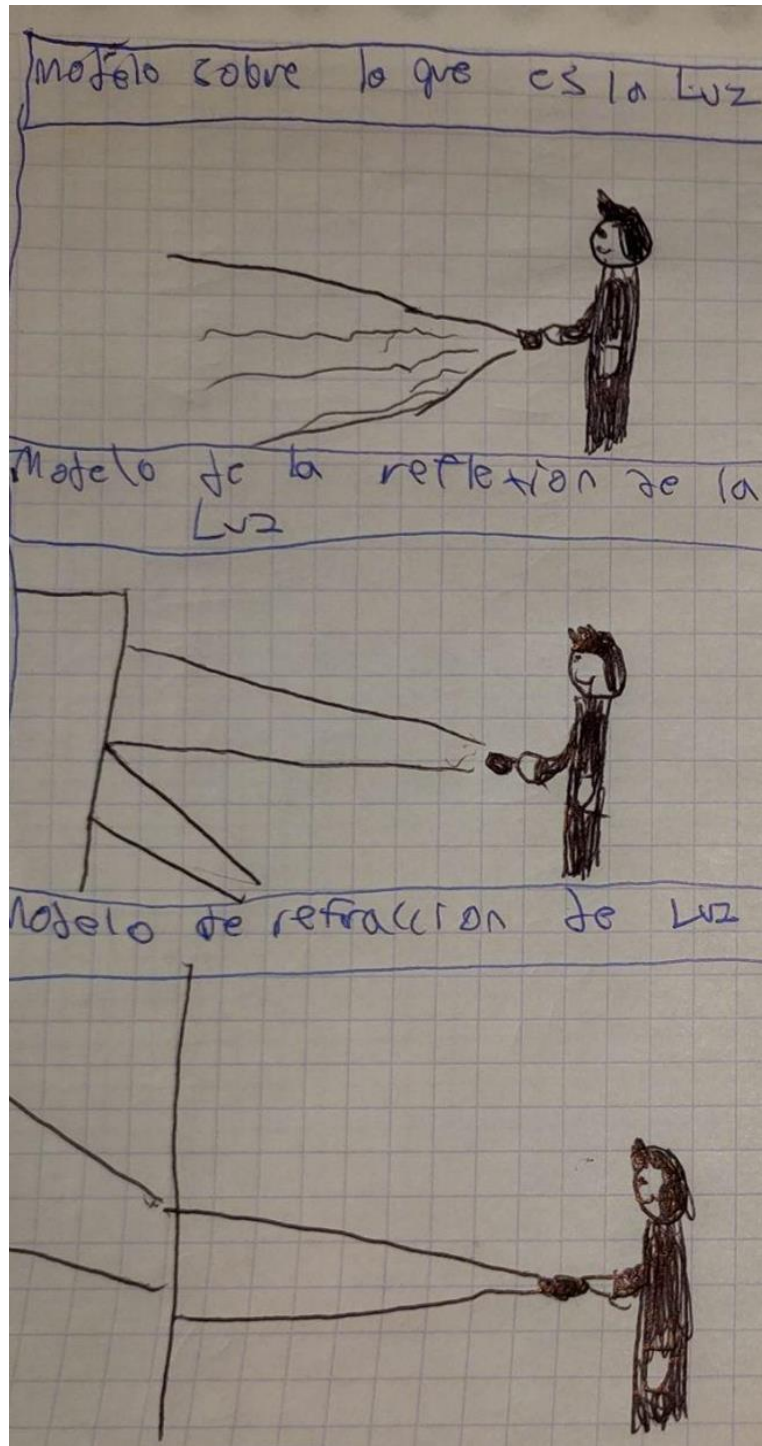 Modelo sobre lo que es la Luz
Modelo de la reflexion de la
Luz
Modelo de refraccion de Luz